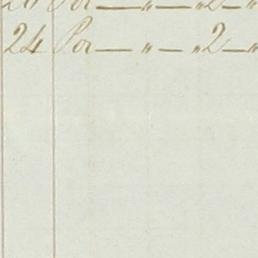 Por — „ — „ 2 — „
24 Por — „ — „ 2 — „